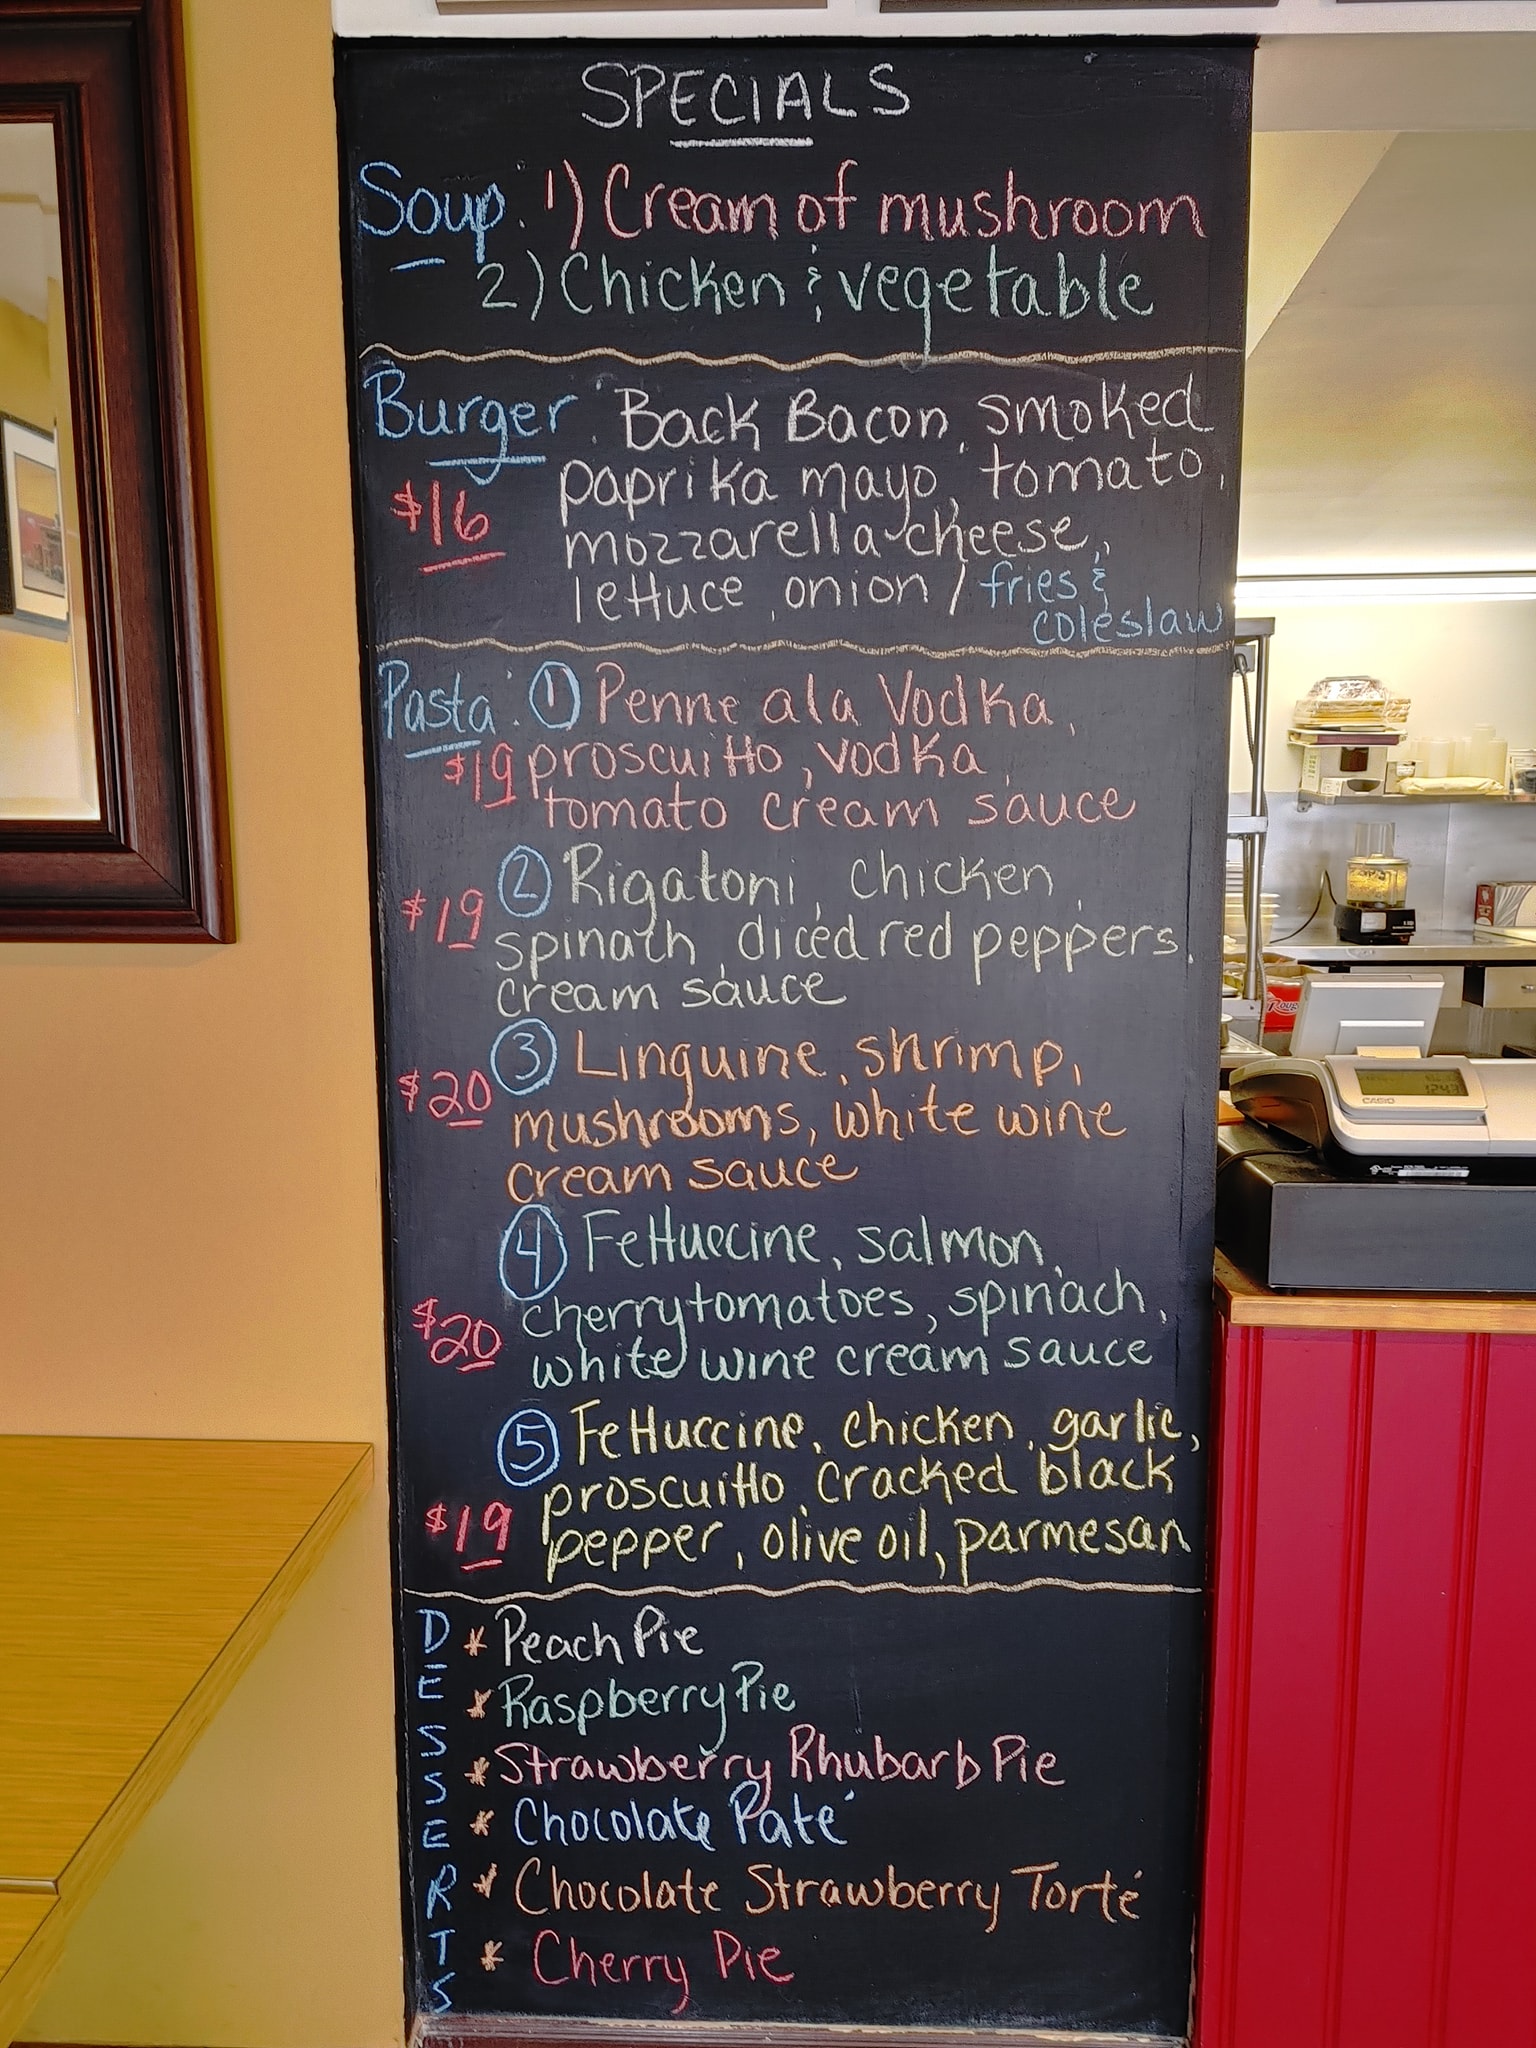 SPECIALS
Soup: 1) Cream of mushroom
2) Chicken & vegetable
Burger: Back Bacon, smoked
$16 paprika mayo, tomato,
mozzarella cheese,
lettuce, onion / fries &
coleslaw
Pasta: 1 Penne ala Vodka,
$19 proscuitto, vodka,
tomato cream sauce
2 Rigatoni, chicken,
$19 spinach, diced red peppers,
cream sauce
3 Linguine, shrimp,
$20 mushrooms, white wine
cream sauce
4 Fettuccine, salmon,
$20 cherry tomatoes, spinach,
white wine cream sauce
5 Fettuccine, chicken, garlic,
proscuitto, cracked black
$19 pepper, olive oil, parmesan
DESSERTS
* Peach Pie
* Raspberry Pie
* Strawberry Rhubarb Pie
* Chocolate Paté
* Chocolate Strawberry Torté
* Cherry Pie
CASIO